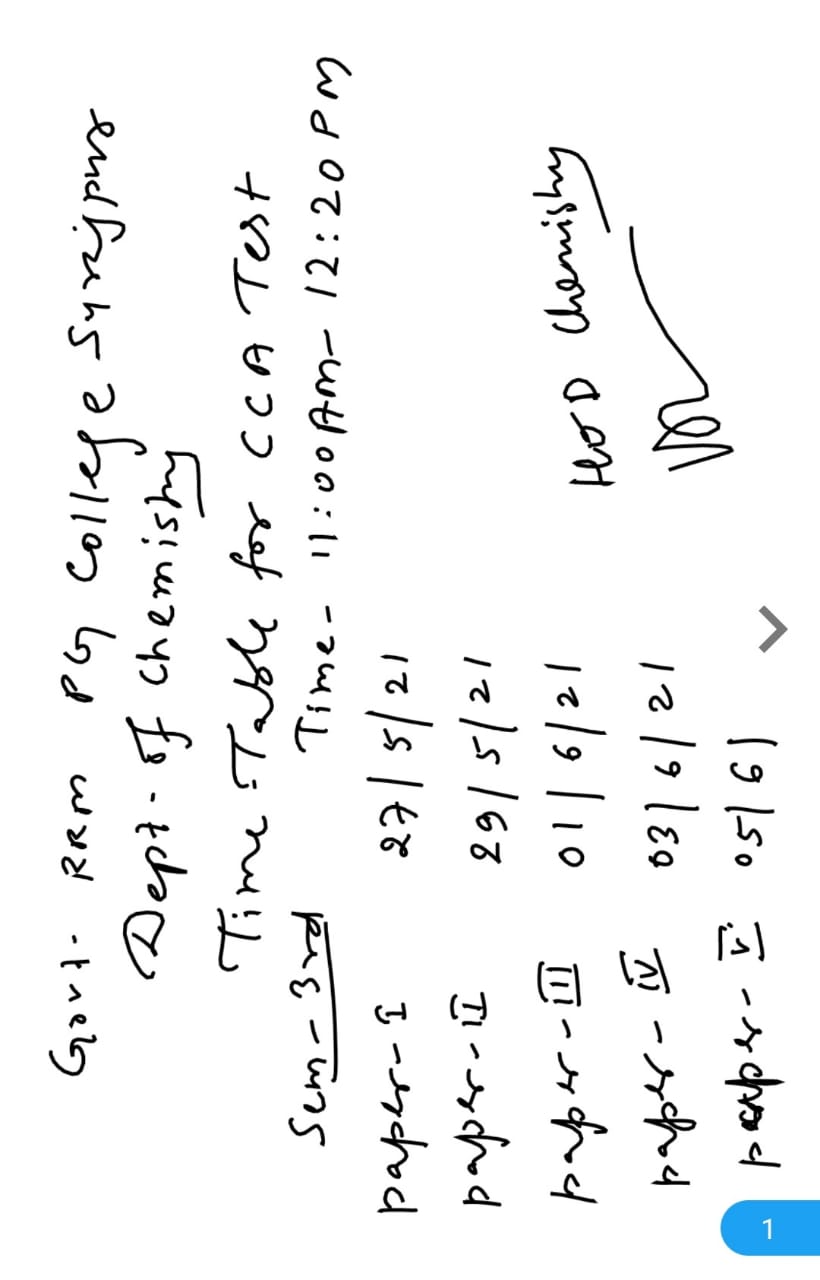 Govt. RRM PG College Surajpur
Dept. of Chemistry
Time:Table for CCA Test
Sem - 3rd Time - 11:00 AM - 12:20 PM
paper - I 27/5/21
paper - II 29/5/21
paper - III 01/6/21
paper - IV 03/6/21
paper - V. 05/6/
HOD Chemistry
1